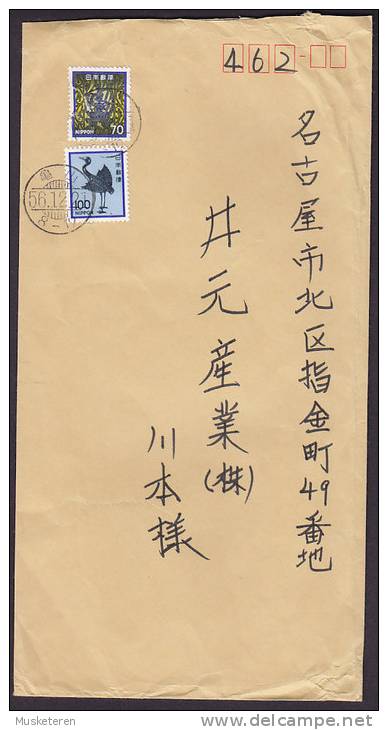 462-
名古屋市北区指金町49番地
井元産業(株)
川本様
日本郵便
NIPPON 70
日本郵便
400
NIPPON
56.12.
8-12
Musketeren
delcampe.net